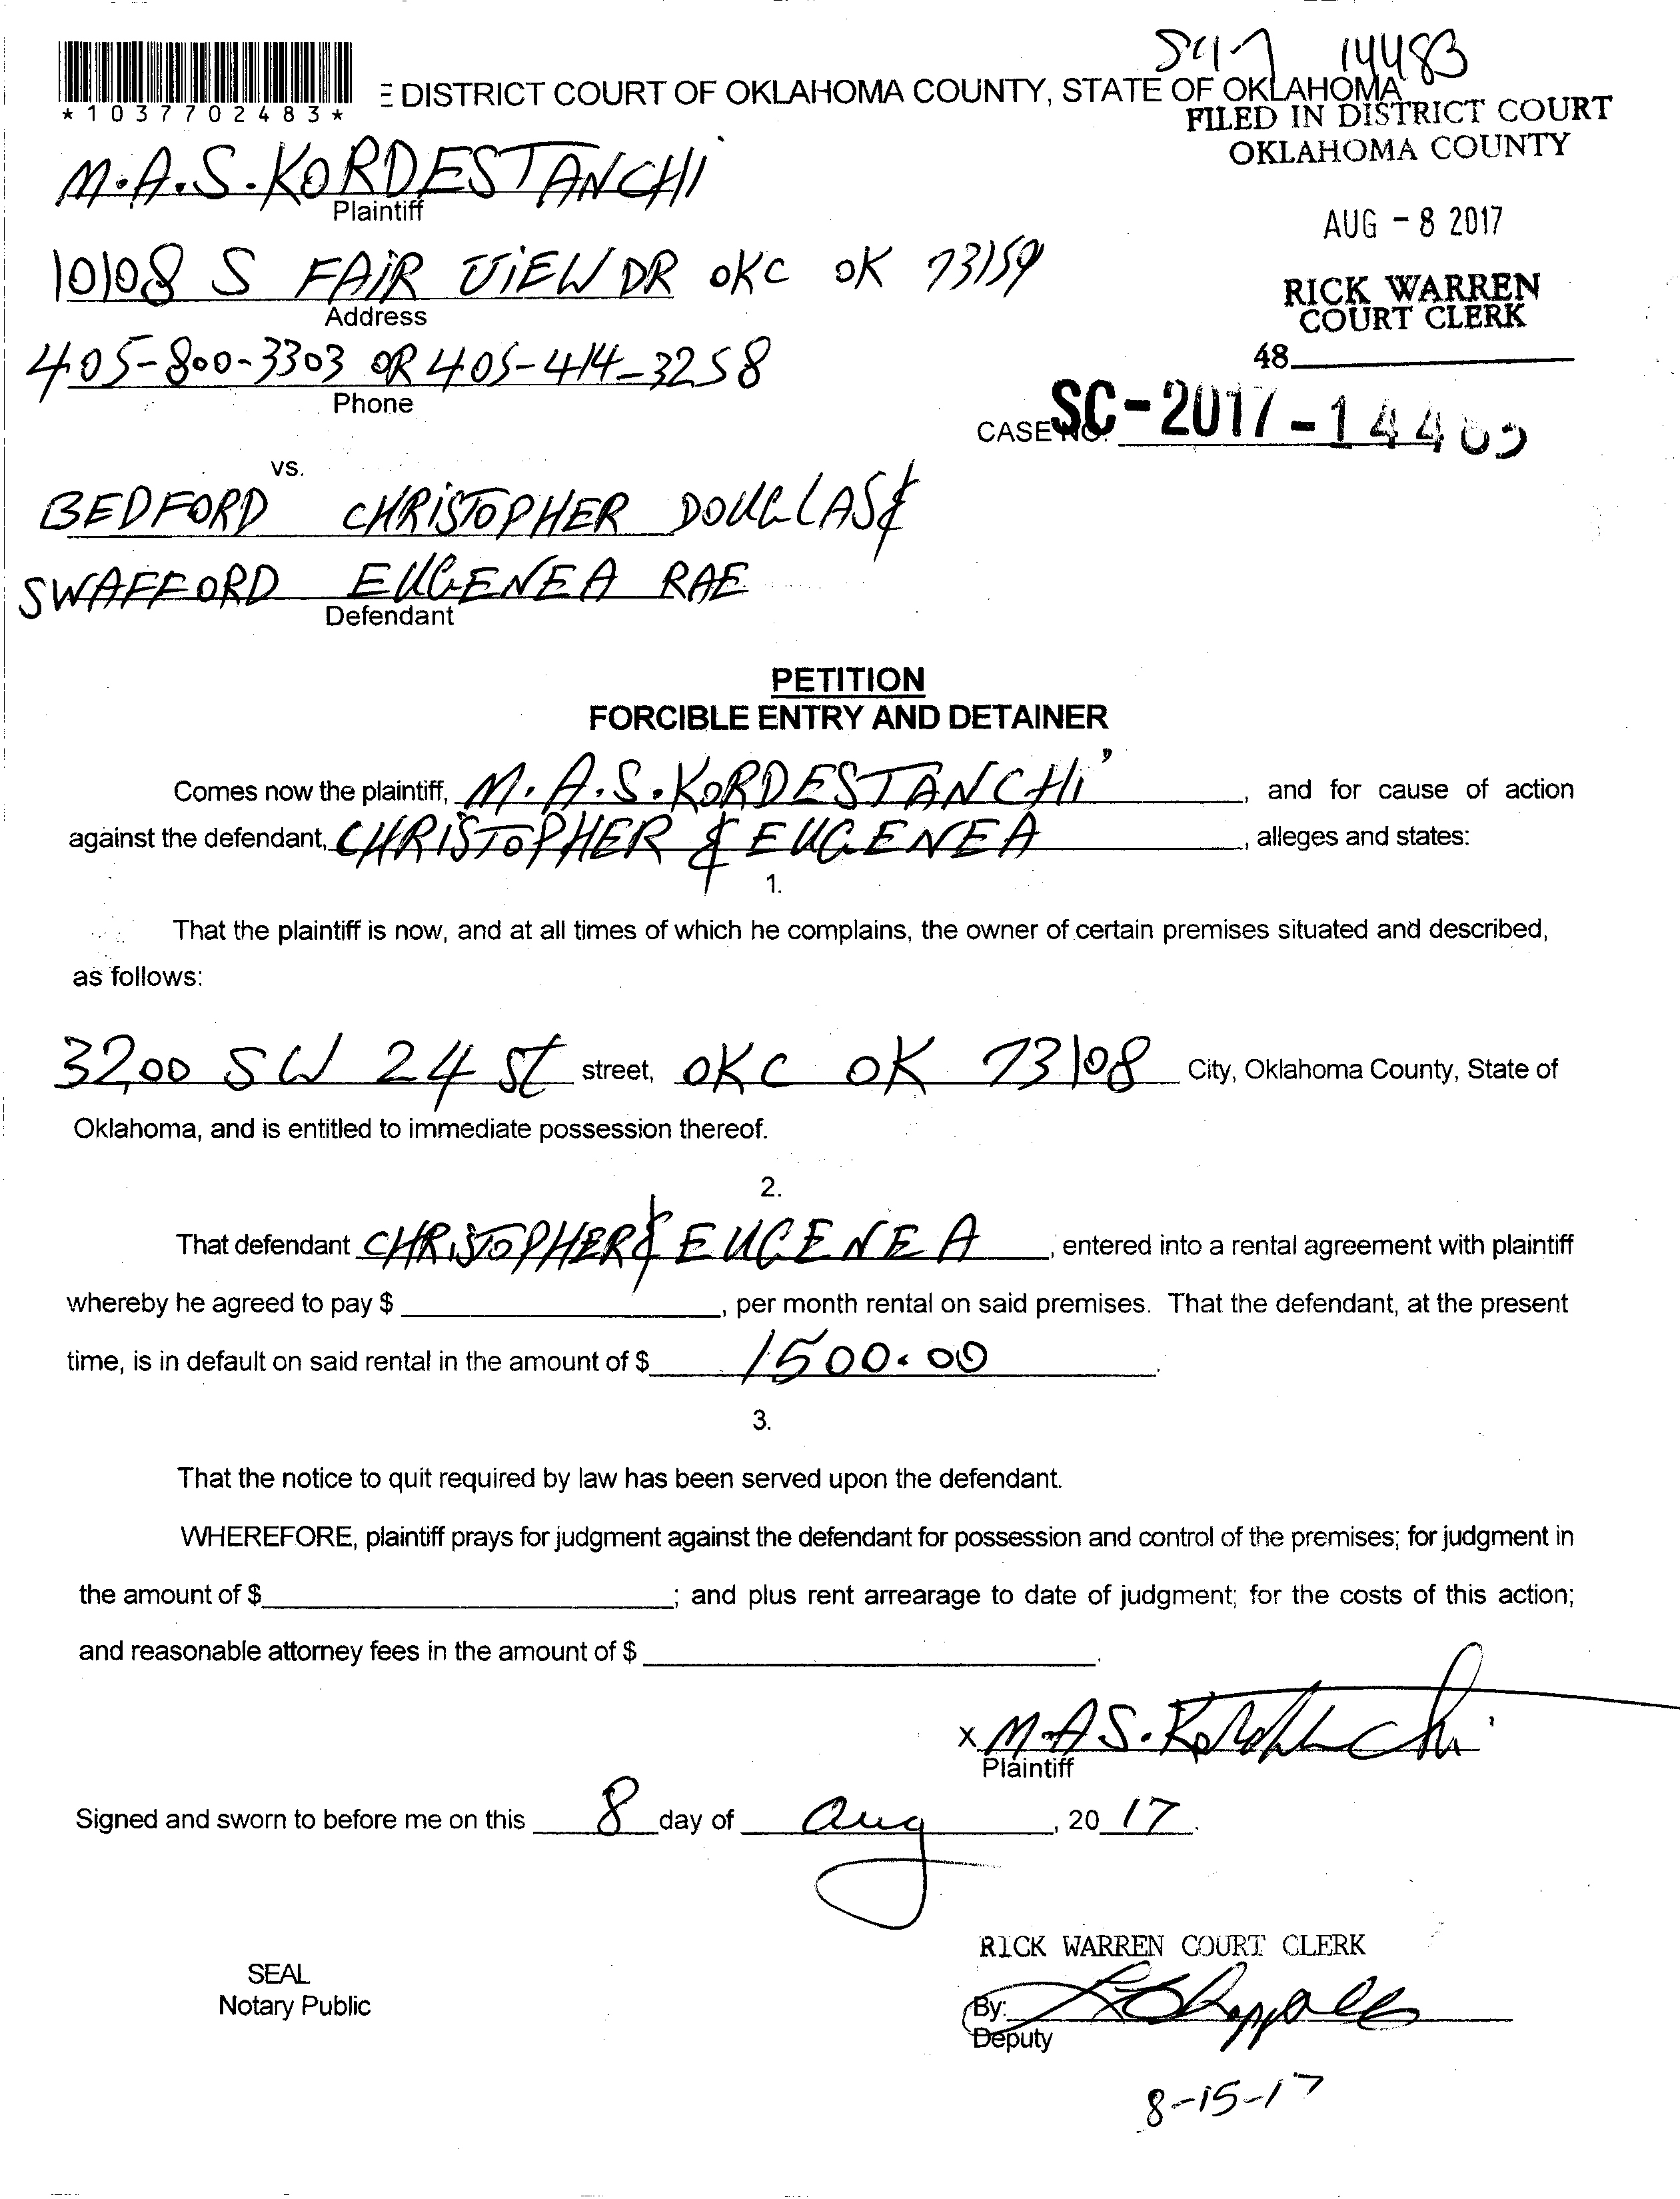 14483
*1037702483*
DISTRICT COURT OF OKLAHOMA COUNTY, STATE OF OKLAHOMA
FILED IN DISTRICT COURT
OKLAHOMA COUNTY
M.A.S.KORDESTANCHI
Plaintiff
AUG - 8 2017
10108 S FAIR VIEW DR OKC OK 73159
Address
RICK WARREN
COURT CLERK
405-800-3303 OR 405-414-3258
Phone
48
CASE NO. SC-2017-14483
vs.
BEDFORD CHRISTOPHER DOUGLAS &
SWAFFORD EUGENEA RAE
Defendant
PETITION
FORCIBLE ENTRY AND DETAINER
Comes now the plaintiff, M.A.S.KORDESTANCHI, and for cause of action
against the defendant, CHRISTOPHER & EUGENEA, alleges and states:
1.
That the plaintiff is now, and at all times of which he complains, the owner of certain premises situated and described,
as follows:
3200 SW 24 St street, OKC OK 73108 City, Oklahoma County, State of
Oklahoma, and is entitled to immediate possession thereof.
2.
That defendant CHRISTOPHER & EUGENEA, entered into a rental agreement with plaintiff
whereby he agreed to pay $, per month rental on said premises. That the defendant, at the present
time, is in default on said rental in the amount of $ 1500.00.
3.
That the notice to quit required by law has been served upon the defendant.
WHEREFORE, plaintiff prays for judgment against the defendant for possession and control of the premises; for judgment in
the amount of $; and plus rent arrearage to date of judgment; for the costs of this action;
and reasonable attorney fees in the amount of $.
X M.A.S.
Plaintiff
Signed and sworn to before me on this 8 day of Aug, 2017.
RICK WARREN COURT CLERK
SEAL
Notary Public
By:
Deputy
8-15-17